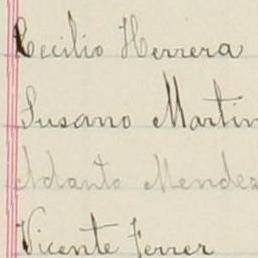 Cecilio Herrera
Susano Martin
Mendez
Vicente Ferrer